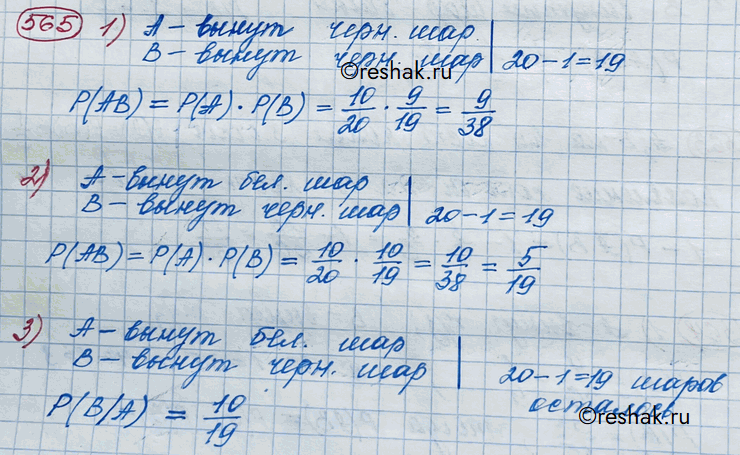 565 1) A – вынут черн. шар
B – вынут черн. шар | 20 – 1 = 19
©reshak.ru
P(AB) = P(A) · P(B) = 10/20 · 9/19 = 9/38
2) A – вынут бел. шар
B – вынут черн. шар | 20 – 1 = 19
P(AB) = P(A) · P(B) = 10/20 · 10/19 = 10/38 = 5/19
3) A – вынут бел. шар
B – вынут черн. шар | 20 – 1 = 19 шаров
осталось
P(B/A) = 10/19
©reshak.ru